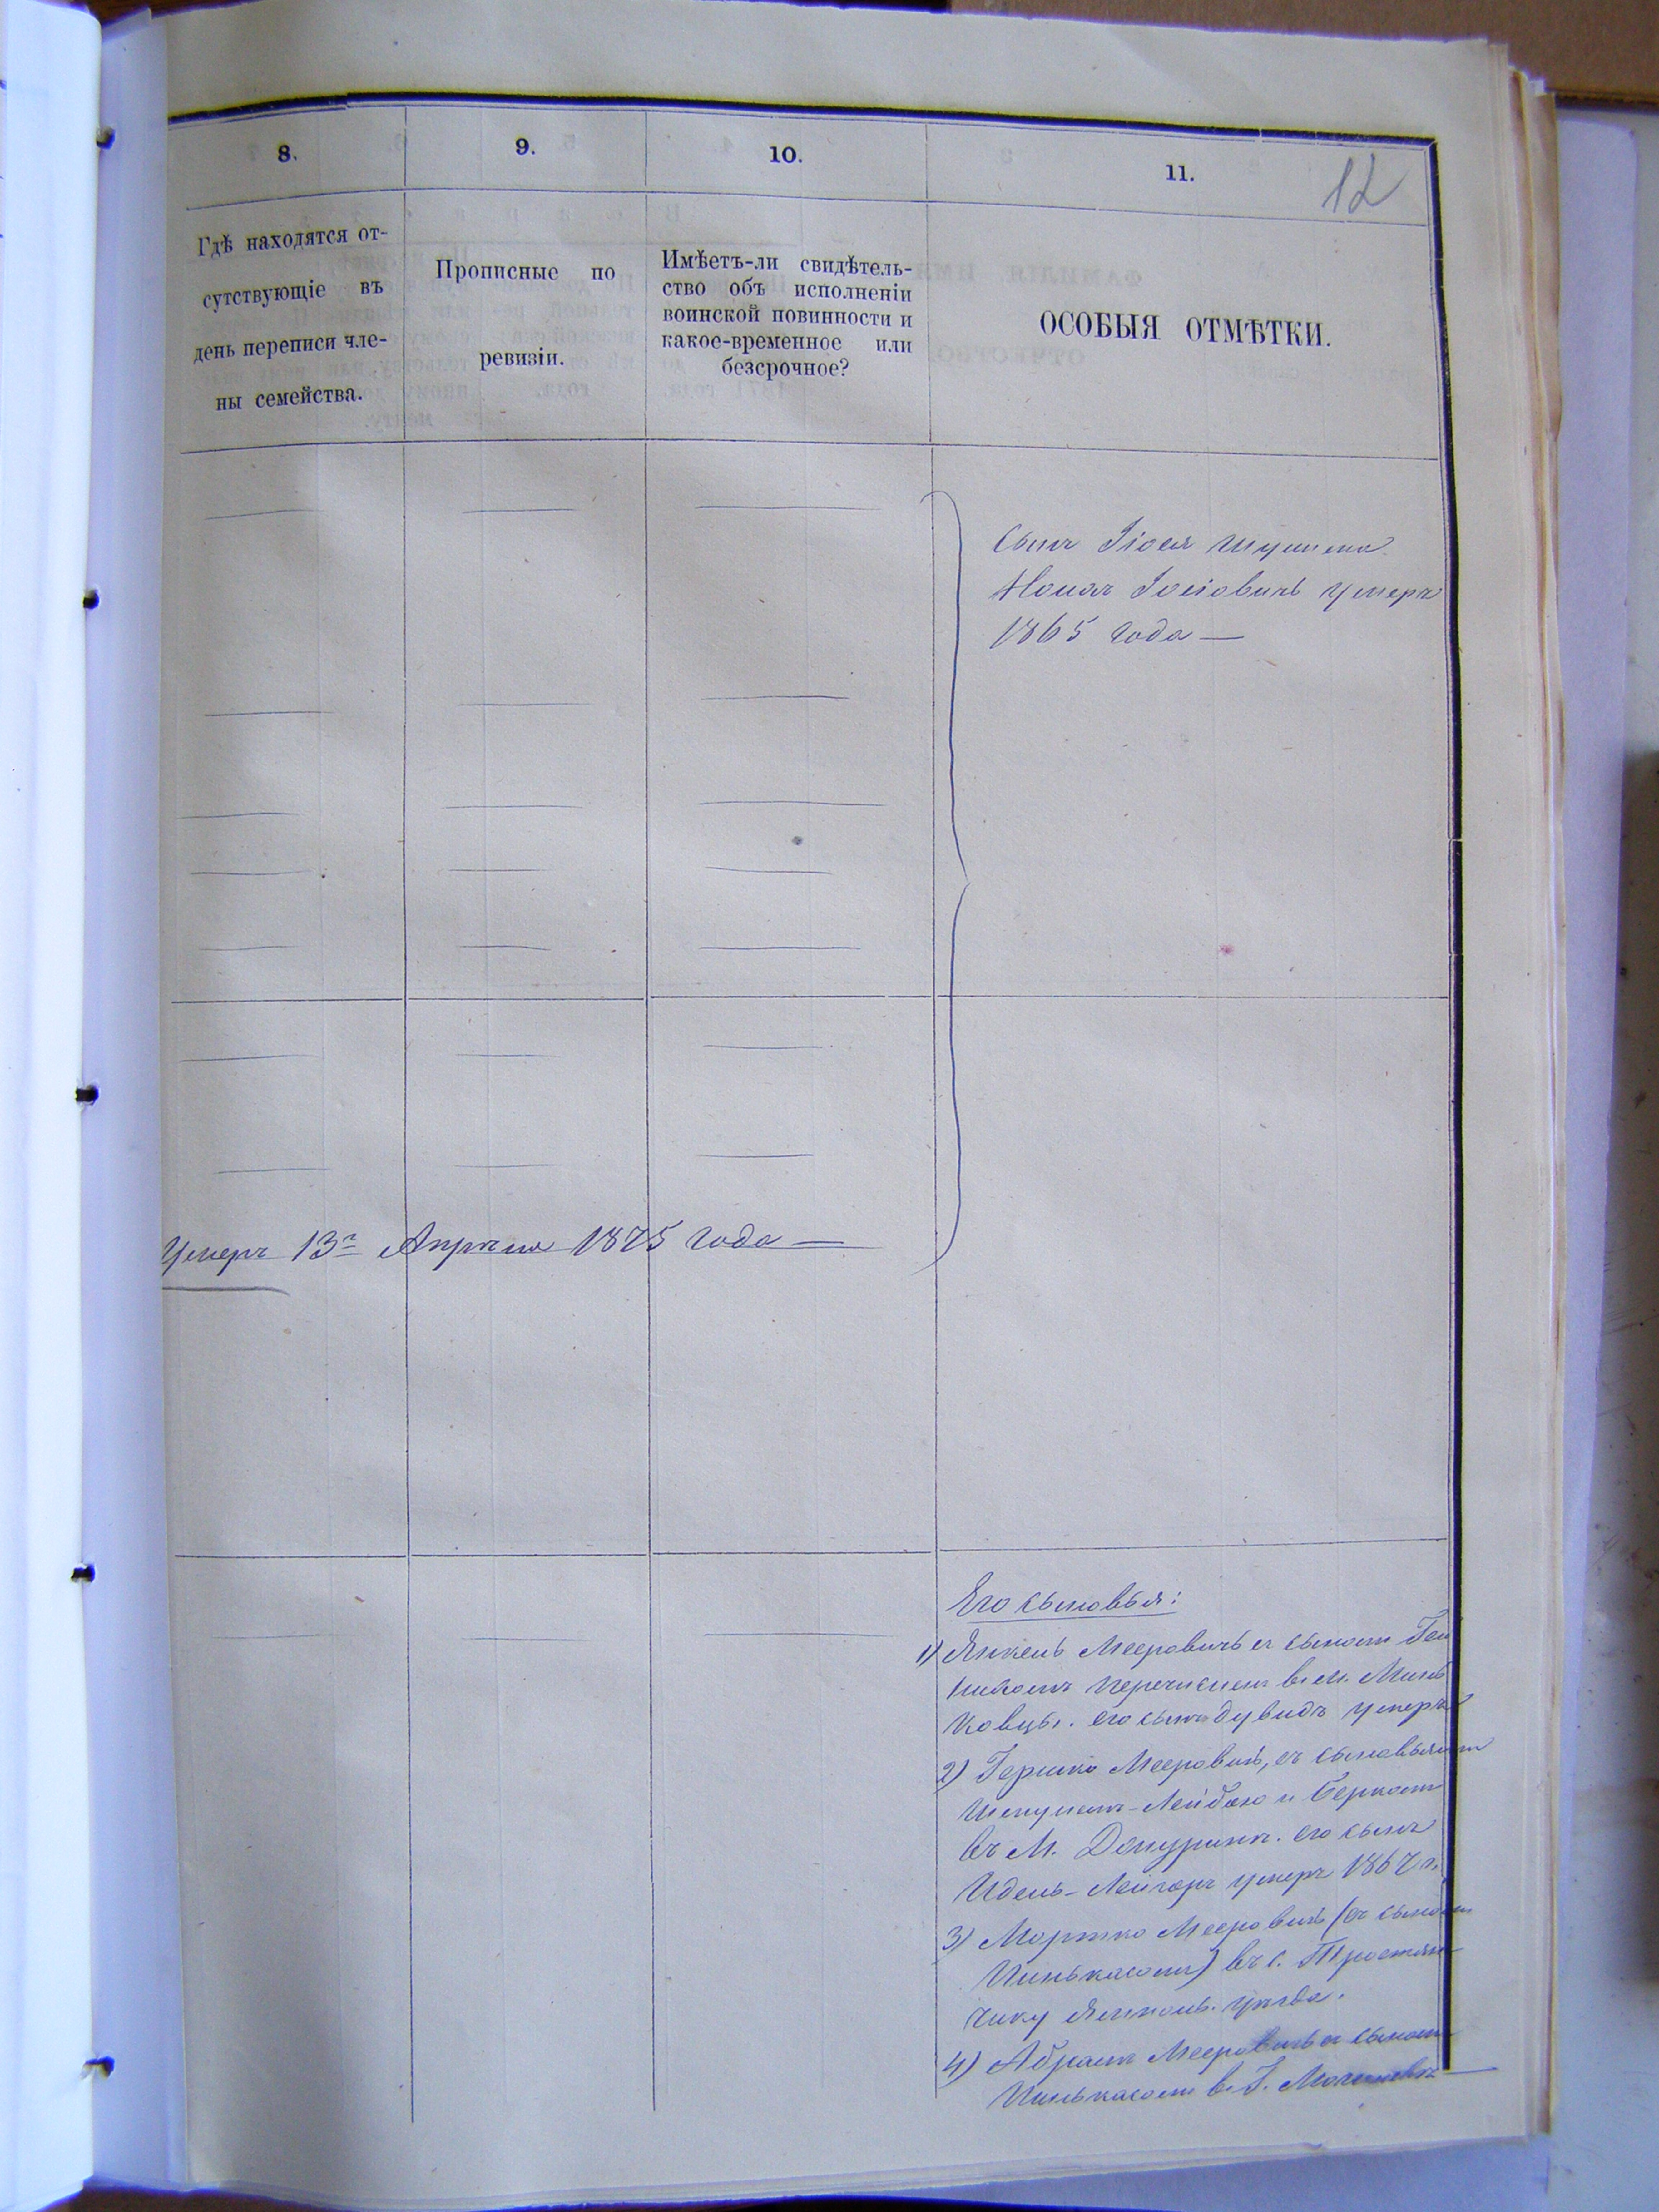 8.
9.
10.
11.
12
Гдѣ находятся от-
сутствующіе въ
день переписи чле-
ны семейства.
Прописные по
ревизіи.
Имѣетъ-ли свидѣтель-
ство объ исполненіи
воинской повинности и
какое-временное или
безсрочное?
ОСОБЫЯ ОТМѢТКИ.
Сынъ Іося
Іосіовичъ умеръ
1865 года —
Умеръ 13го Апрѣля 1875 года —
Его сыновья:
1) Янкель Мееровичъ съ сыномъ
перечисленъ въ м. Минь
ковцы. его сынъ Дувидъ умеръ
2) Гершко Мееровичъ, съ сыновьями
Шмулемъ-Лейбою и Беркомъ
въ М. его сынъ
Идель- умеръ 1867 г.
3) Мортко Мееровичъ (съ сыномъ
Пинькасомъ) въ с. Тростян
чику Ямполь. уѣзда.
4) Абрамъ Мееровичъ съ сыномъ
Пинькасомъ въ Г. Могилевѣ